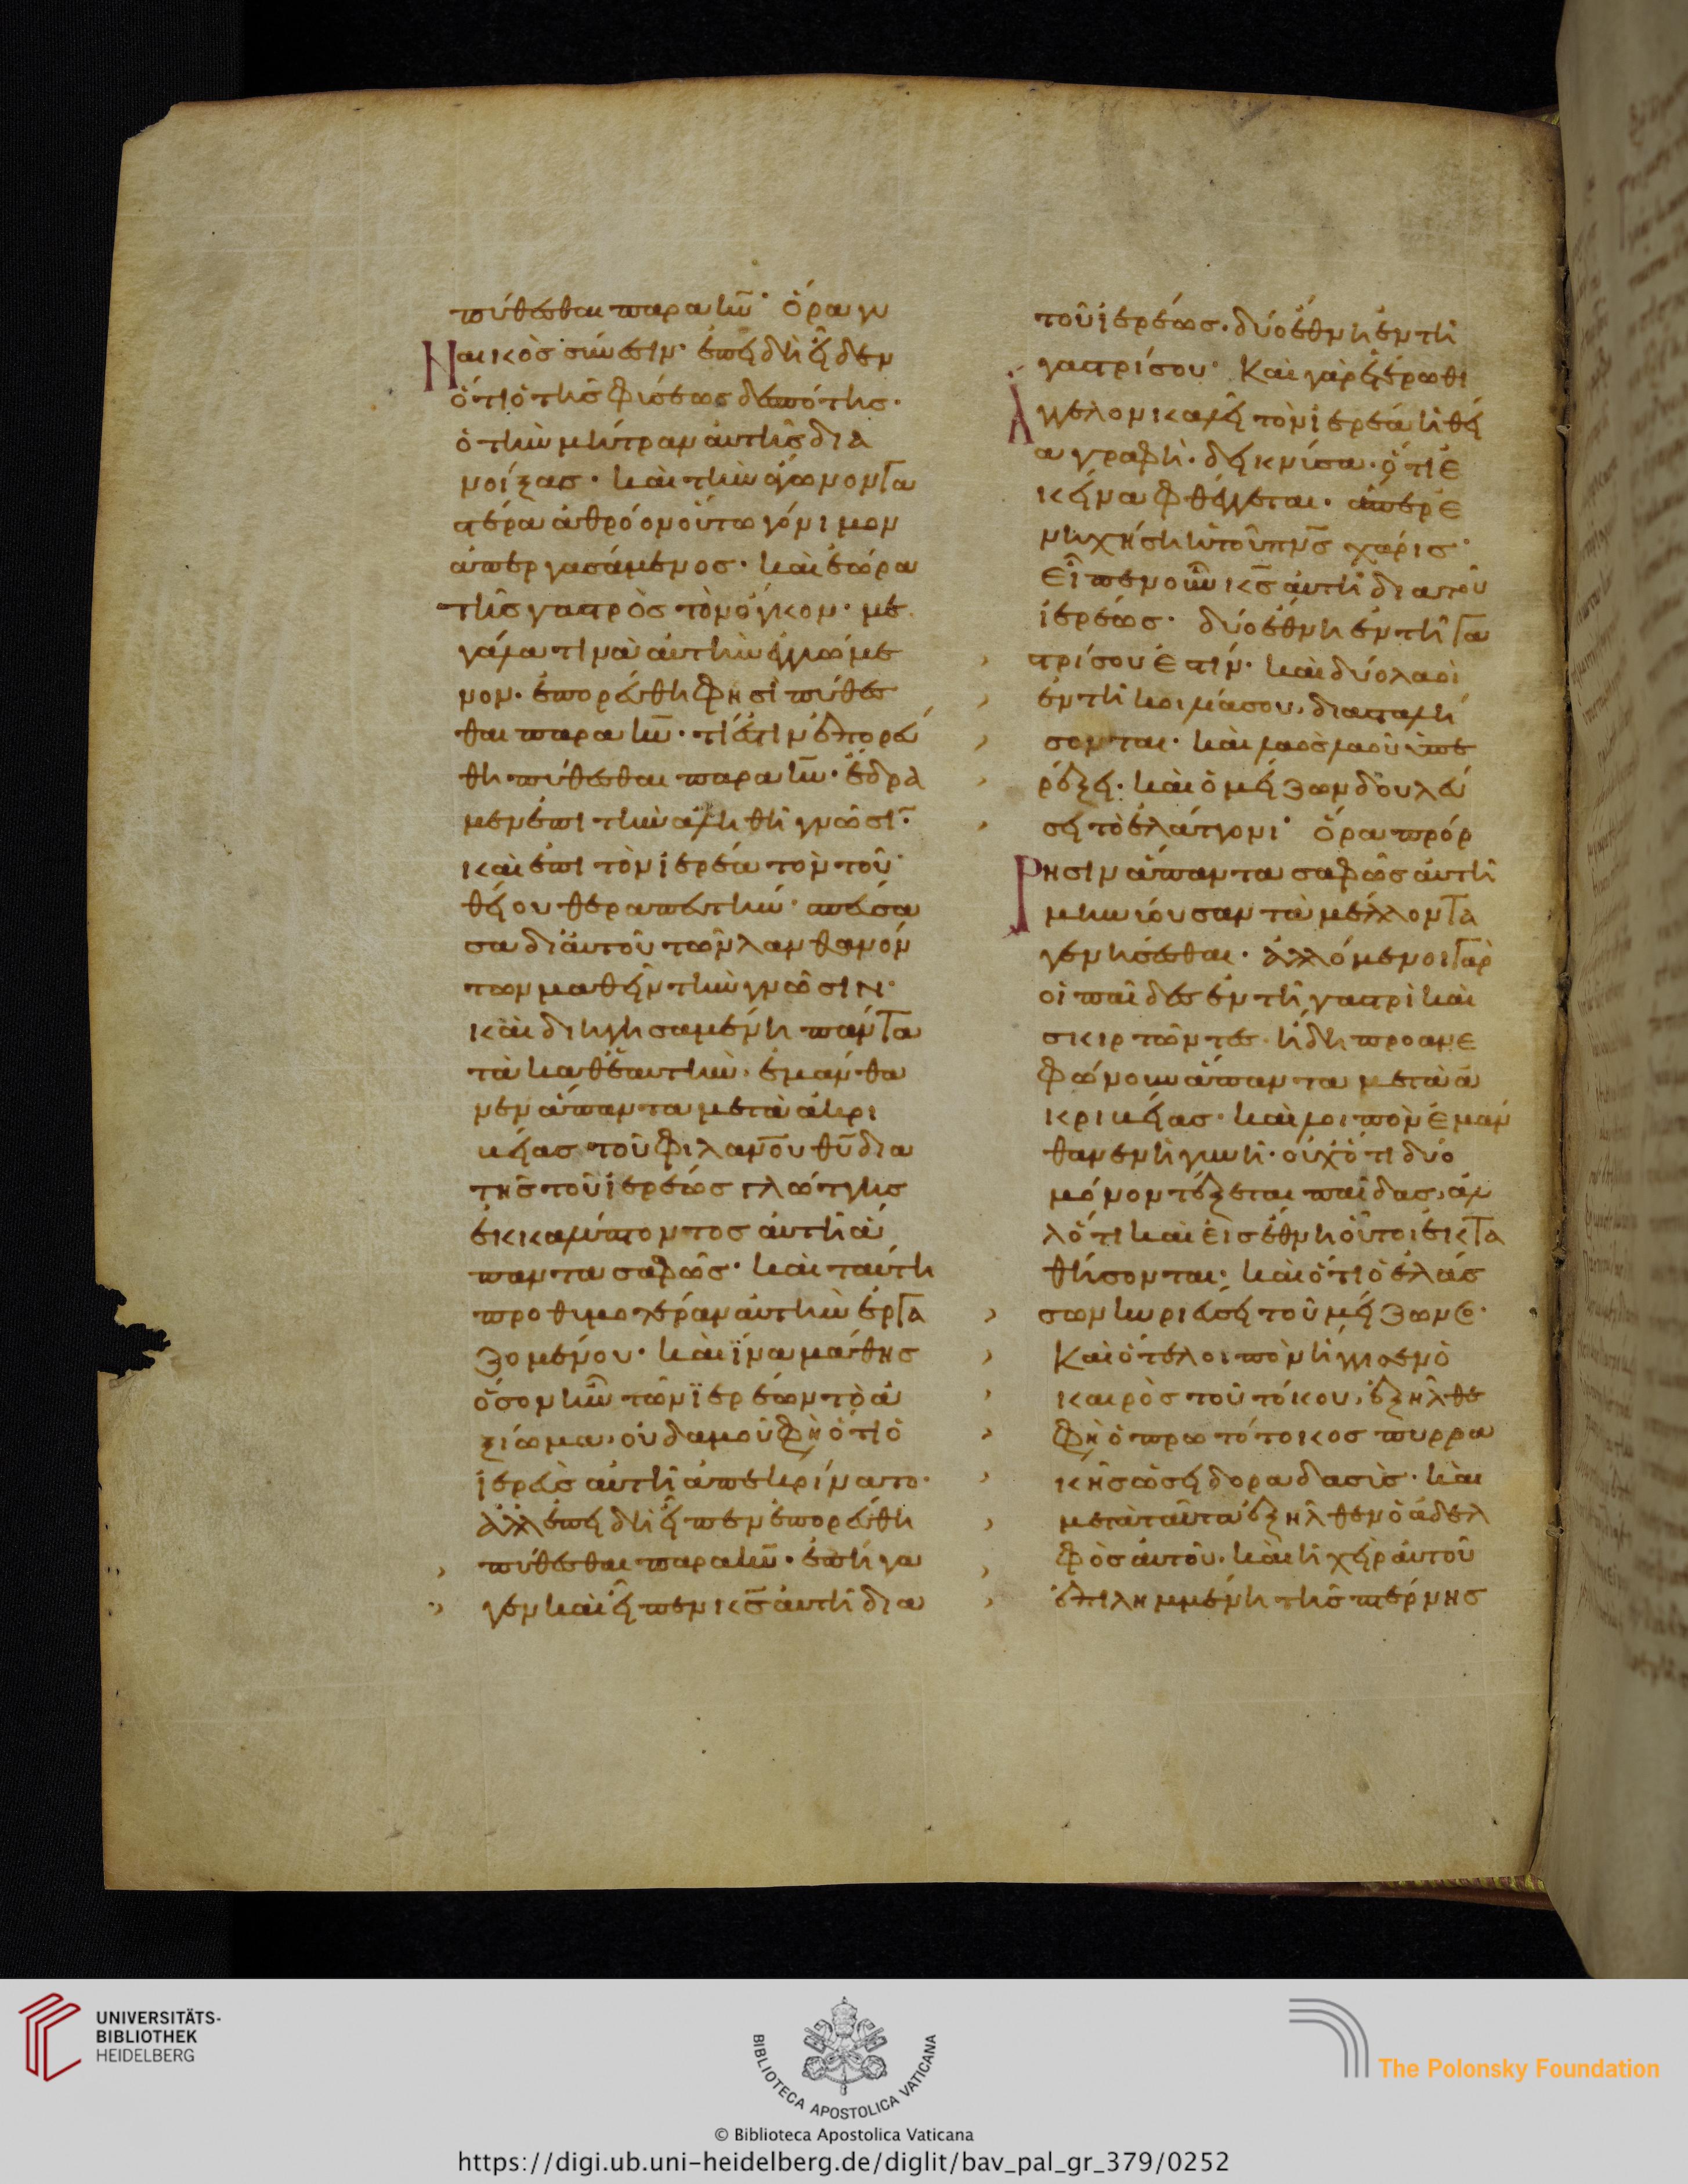 πύθεσθαι παρα κῡ· ὅρα γυ
ναικὸς σύνεσιν· ἐπεὶ δὴ εἶδεν
ὅτι ὁ τῆς φύσεως δεσπότης·
ὁ τὴν μήτραν ἀυτῆς δια
νοίξας· καὶ τὴν ἄγωνον γα
στέρα ἀθρόον οὕτω γόνιμον
ἀπεργασάμενος· καὶ ἑώρα
τῆς γαστρὸς τὸν ὄγκον· με
γάλα τινὰ ἀυτὴν ἐγγυώμε
νον· ἐπορεύθη φησὶ πύθεσ
θαι παρα κῡ· τί ἐστιν ἐπορεύ
θη πύθεσθαι παρα κῡ· ἔδρα
μεν ἐπι τὴν ἀληθῆ γνῶσῑ·
και ἐπι τὸν ἱερέα τὸν τοῦ
θεῖου θεραπευτὴν· σπεύσα
σα δι ἀυτοῦ τῶν λανθανόν
των μαθεῖν τὴν γνῶσιν·
καὶ διηγησαμένη πάντα
τὰ καθ ἑαυτὴν· ἐμάνθα
νεν ἅπαντα μετὰ ἀκρι
βείας τοῦ φιλαν̅ου θῡ δια
τῆς τοῦ ἱερέως γλώττης
ἐκκαλύπτοντος ἀυτῆ ἅ
παντα σαφῶς· καὶ ταύτη
προθυμοτέραν ἀυτὴν ἐργα
ζομένου· καὶ ἵνα μάθης
ὅσον ἦν τῶν ἱερέων τὸ ἀ
ξίωμα· οὐδαμοῦ φη ὅτι ὁ
ἱερεὺς αυτῆ ἀπεκρίνατο·
ἀλλ ἐπει δὴ εἶπεν ἐπορεύθη
πύθεσθαι παρα κῡ· ἐπήγα
γεν καὶ εἶπεν κς̅ ἀυτῆ δια
τοῦ ἱερέως· δύο ἔθνη ἐν τῆ
γαστρί σου· Και γὰρ ἑτέρωθι
ἄγγελον καλεῖ τὸν ἱερέα ἡ θεί
α γραφὴ· δεικνύσα· ὅτι ἐ
κεῖνα φθέγγεται· ἅπερ ἐ
νηχήση ἡ τοῦ πνς̅ χάρις·
Εἶπεν οὖν κς̅ ἀυτῆ δια τοῦ
ἱερέως· δύο ἔθνη ἐν τῆ γα
στρί σου ἐστίν· καὶ δύο λαοὶ
ἐν τῆ κοιλία σου, διασταλή
σονται· καὶ λαὸς λαοῦ ὑπε
ρέξει· καὶ ὁ μείζων δουλεύ
σει τὸ ἐλάττονι· ὅρα πρόρ
ρησιν ἅπαντα σαφῶς ἀυτῆ
μηνύουσαν τὰ μέλλοντα
γενήσεσθαι· ἀλλόμενοι γὰρ
οἱ παῖδες ἐν τῆ γαστρὶ καὶ
σκιρτῶντες, ἤδη προανε
φώνουν ἅπαντα μετὰ ἀ
κριβείας· καὶ λοιπὸν ἐμάν
θανεν ἡ γυνὴ· οὐχ ὅτι δύο
μόνον τέξεται παῖδας, ἀλ
λ ὅτι καὶ εἰς ἔθνη οὗτοι ἐκτα
θήσονται· καὶ ὅτι ὁ ἐλάσ
σων κυριεύσει τοῦ μείζωνο·
Και ὅτε λοιπὸν ἤγγισεν ὁ
καιρὸς τοῦ τόκου, ἐξῆλθε
φη ὁ πρωτότοκος πυρρα
κὴς ὡσεὶ δορα δασὺς· καὶ
μετὰ ταῦτα ἐξῆλθεν ὁ ἀδελ
φὸς ἀυτοῦ· καὶ ἡ χεὶρ ἀυτοῦ
ἐπιλημμένη τῆς πτέρνης
UNIVERSITÄTS-
BIBLIOTHEK
HEIDELBERG
BIBLIOTECA APOSTOLICA VATICANA
The Polonsky Foundation
© Biblioteca Apostolica Vaticana
https://digi.ub.uni-heidelberg.de/diglit/bav_pal_gr_379/0252